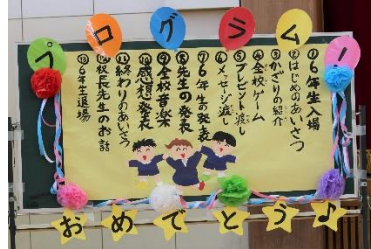 プログラム！
①6年生入場
②はじめのあいさつ
③かざりの紹介
④全校ゲーム
⑤プレゼント渡し
⑥メッセージ渡し
⑦6年生の発表
⑧先生の発表
⑨全校音楽
⑩感想発表
⑪終わりのあいさつ
⑫校長先生のお話
⑬6年生退場
おめでとう♪